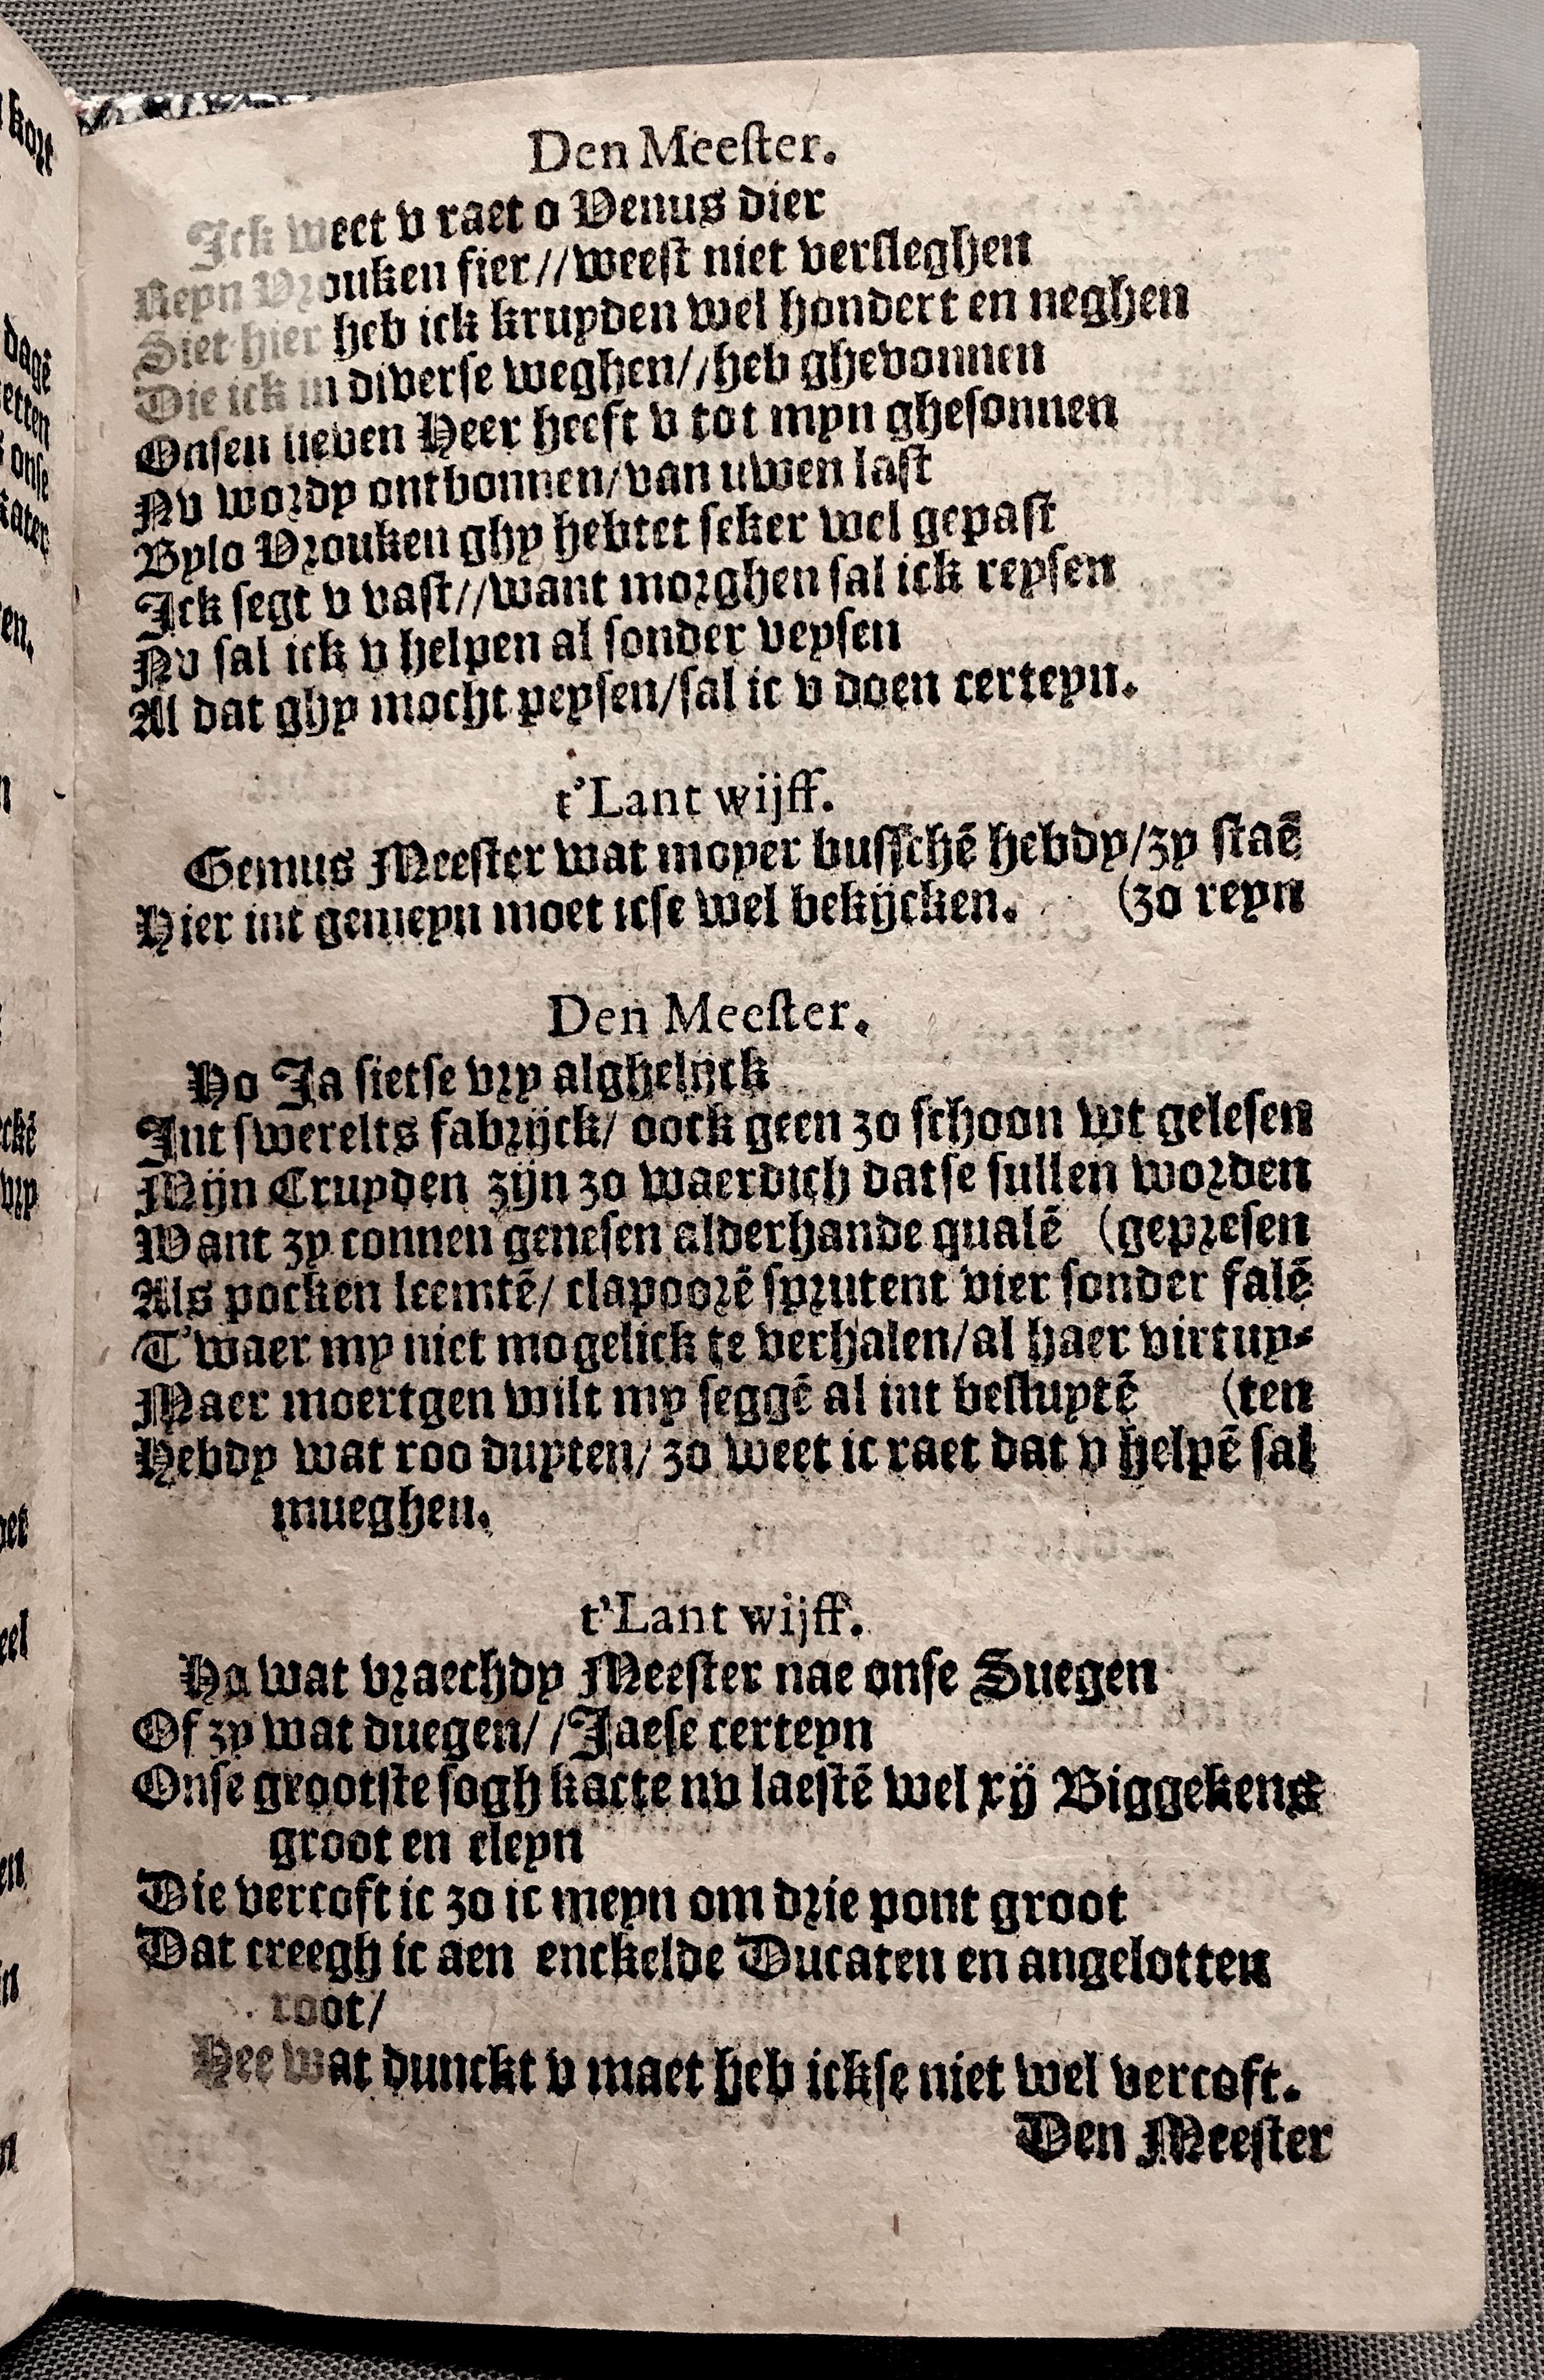 Den Meester.
Ick weet v raet o Venus dier
Reyn Vrouken fier//weest niet versleghen
Siet hier heb ick kruyden wel hondert en neghen
Die ick in diverse weghen//heb ghevonnen
Onsen lieven Heer heeft v tot myn ghesonnen
Nv wordy ontbonnen/van uwen last
Bylo Vrouken ghy hebtet seker wel gepast
Ick segt v vast//want morghen sal ick reysen
Nv sal ick v helpen al sonder veysen
Al dat ghy mocht peysen/sal ic v doen certeyn.
t'Lant wijff.
Gemus Meester wat moyer busschē hebdy/zy staē
(zo reyn
Hier int gemeyn moet icse wel bekijcken.
Den Meester.
Ho Ja sietse vry alghelijck
Int swerelts fabrijck/ oock geen zo schoon wt gelesen
Mijn Cruyden zijn zo waerdich datse sullen worden
(gepresen
Want zy connen genesen alderhande qualē
Als pocken leemtē/ clapoorē sprutent vier sonder falē
T'waer my niet mogelick te verhalen/al haer virtuy-
(ten
Maer moertgen wilt my seggē al int besluytē
Hebdy wat roo duyten/ zo weet ic raet dat v helpē sal
mueghen.
t'Lant wijff.
Ha wat vraechdy Meester nae onse Suegen
Of zy wat duegen//Jaese certeyn
Onse grootste sogh kacte nv laestē wel xij Biggekens
groot en cleyn
Die vercoft ic zo ic meyn om drie pont groot
Dat creegh ic aen enckelde Ducaten en angelotten
root/
Hee wat dunckt v maet heb ickse niet wel vercoft.
Den Meester